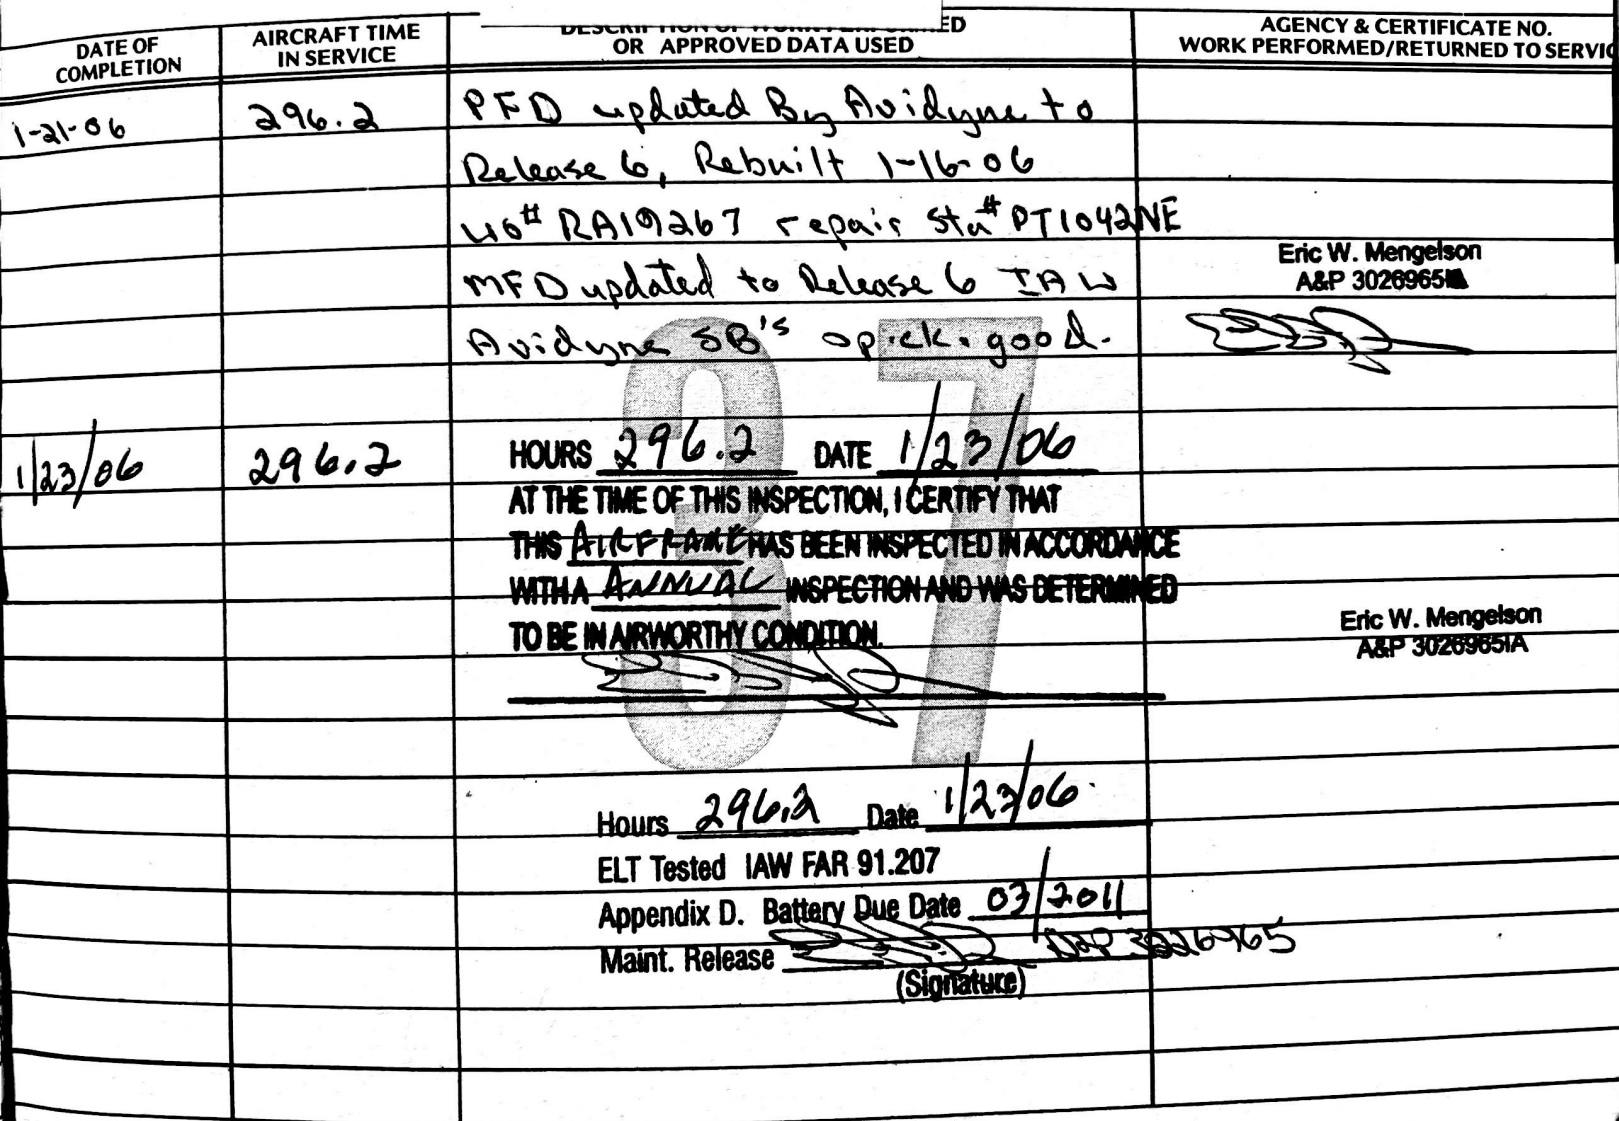 DATE OF COMPLETION
AIRCRAFT TIME IN SERVICE
DESCRIPTION OF WORK PERFORMED OR APPROVED DATA USED
AGENCY & CERTIFICATE NO.
WORK PERFORMED/RETURNED TO SERVIC
1-21-06 296.2 PFD updated By Avidyne to
Release 6, Rebuilt 1-16-06
wo# RA19267 repair sta# PT1042NE
MFD updated to Release 6 IAW
Avidyne SB's op.ck. good.
Eric W. Mengelson
A&P 3026965IA
37
1/23/06 296.2 HOURS 296.2 DATE 1/23/06
AT THE TIME OF THIS INSPECTION, I CERTIFY THAT
THIS AIRFRAME HAS BEEN INSPECTED IN ACCORDANCE
WITH A ANNUAL INSPECTION AND WAS DETERMINED
TO BE IN AIRWORTHY CONDITION.
Eric W. Mengelson
A&P 3026965IA
Hours 296.2 Date 1/23/06
ELT Tested IAW FAR 91.207
Appendix D. Battery Due Date 03/2011
Maint. Release A&P 3026965
(Signature)